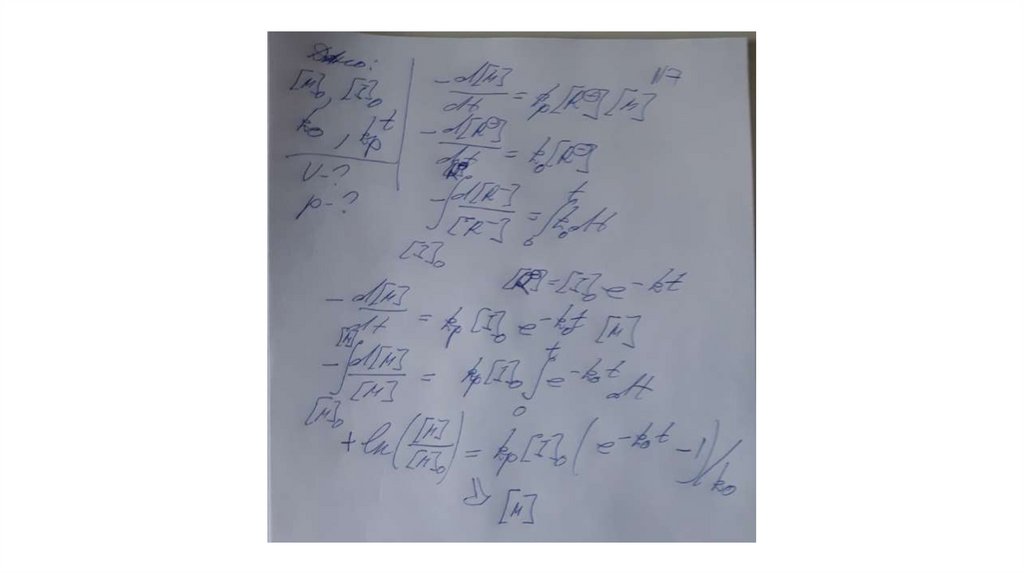 Дано:
[M]₀, [I]₀
k₀, kp, t
V-?
p-?
№7
-d[M]/dt = kp[R⊖][M]
-d[R⊖]/dt = k₀[R⊖]
-∫_{[I]₀} d[R⁻]/[R⁻] = ∫₀ᵗ k₀dt
[R⊖]=[I]₀ e^{-k₀t}
-d[M]/dt = kp[I]₀ e^{-k₀t} [M]
-∫_{[M]₀}^{[M]} d[M]/[M] = kp[I]₀ ∫₀ᵗ e^{-k₀t} dt
+ ln([M]/[M]₀) = kp[I]₀(e^{-k₀t} - 1)/k₀
⇓ [M]